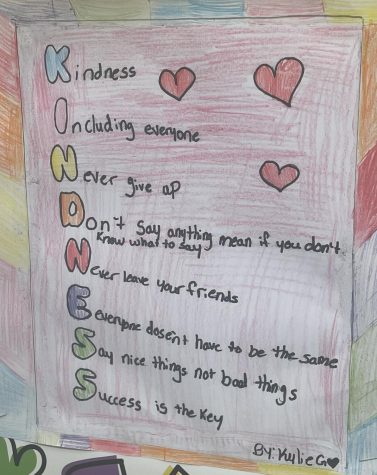 Kindness
Including everyone
Never give up
Don't say anything mean if you don't
Know what to say
Never leave your friends
Eeveryone dosen't have to be the same
Say nice things not bad things
Success is the key
BY: Kylie G